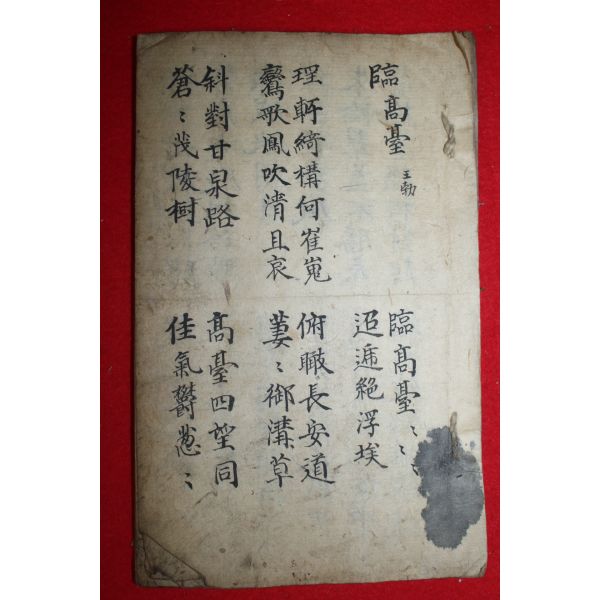 臨髙臺 王勃
臨髙臺〻〻
迢逓絶浮埃
理軒綺構何崔嵬
鸞歌鳳吹清且哀
俯瞰長安道
萋〻御溝草
斜對甘泉路
蒼〻茂陵樹
髙臺四望同
佳氣鬱葱〻